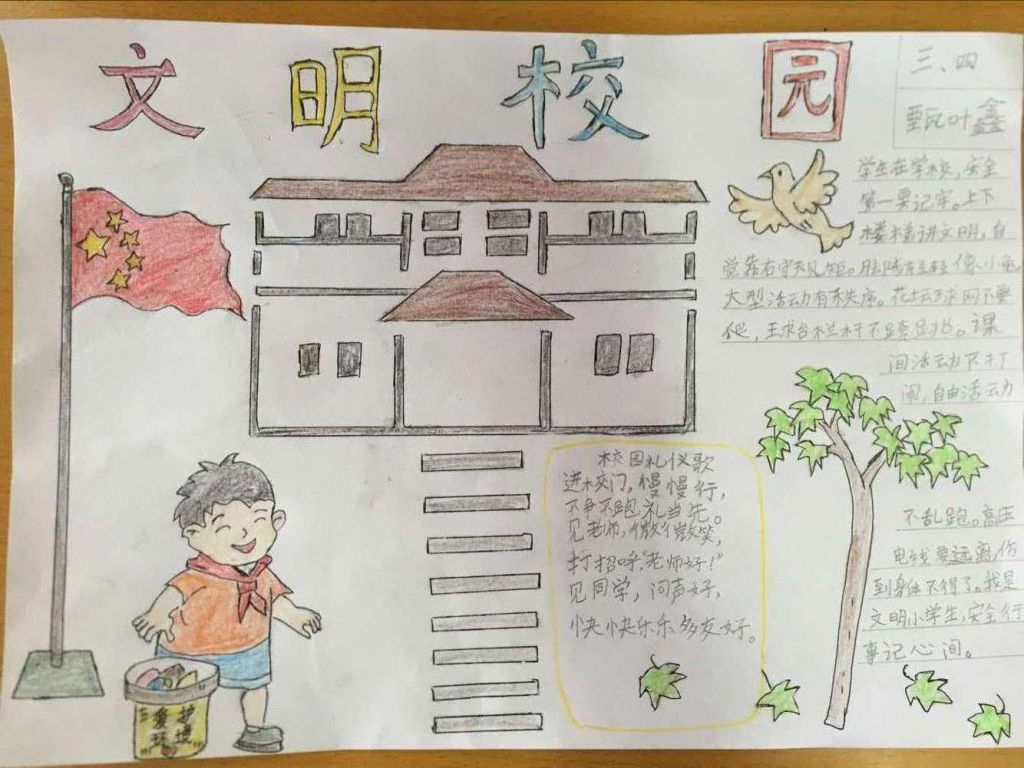 文明校园
三、四
甄叶鑫
学生在学校，安全
第一要记牢。上下
楼梯讲文明，自
觉靠右守规矩。脚步轻轻像小兔，
大型活动有秩序。花坛球网不要
爬，主席台栏杆不跨越。课
间活动不打
闹，自由活动
不乱跑。高压
电线要远离，伤
到身体不得了。我是
文明小学生，安全行
事记心间。
校园礼仪歌
进校门，慢慢行，
不争不跑礼当先。
见老师，微微笑，
打招呼，“老师好！”
见同学，问声好，
快快乐乐多友好。
爱护
环境